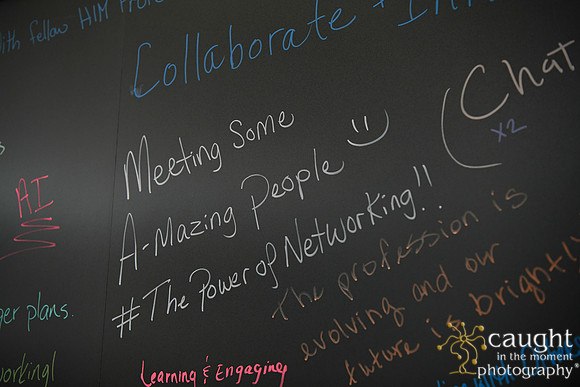 ith fellow HIM Prof
Collaborate + In
Meeting Some
A-mazing People
#The Power of Networking!!
Chat
x2
AI
The profession is
evolving and our
future is brightly
er plans.
orking!
Learning & Engaging
caught
in the moment
photography